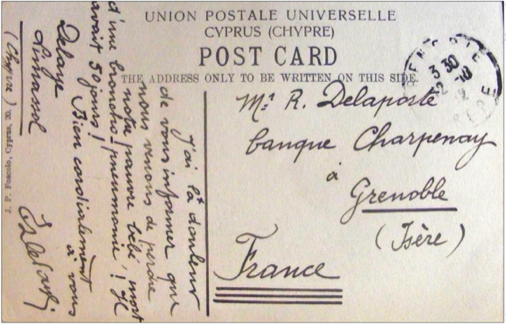 UNION POSTALE UNIVERSELLE
CYPRUS (CHYPRE)
POST CARD
THE ADDRESS ONLY TO BE WRITTEN ON THIS SIDE.
3 30
Mr R. Delaposte
banque Charpenay
à
Grenoble
(Isère)
France
J'ai la douleur
de vous informer que
nous venons de perdre
notre pauvre bébé, mort
d'une broncho/pneumonie ! Il
avait 50 jours !
Bien cordialement
à vous
Delaye
Limassol
(Chypre)
J. P. Foscolo, Cyprus, 20.